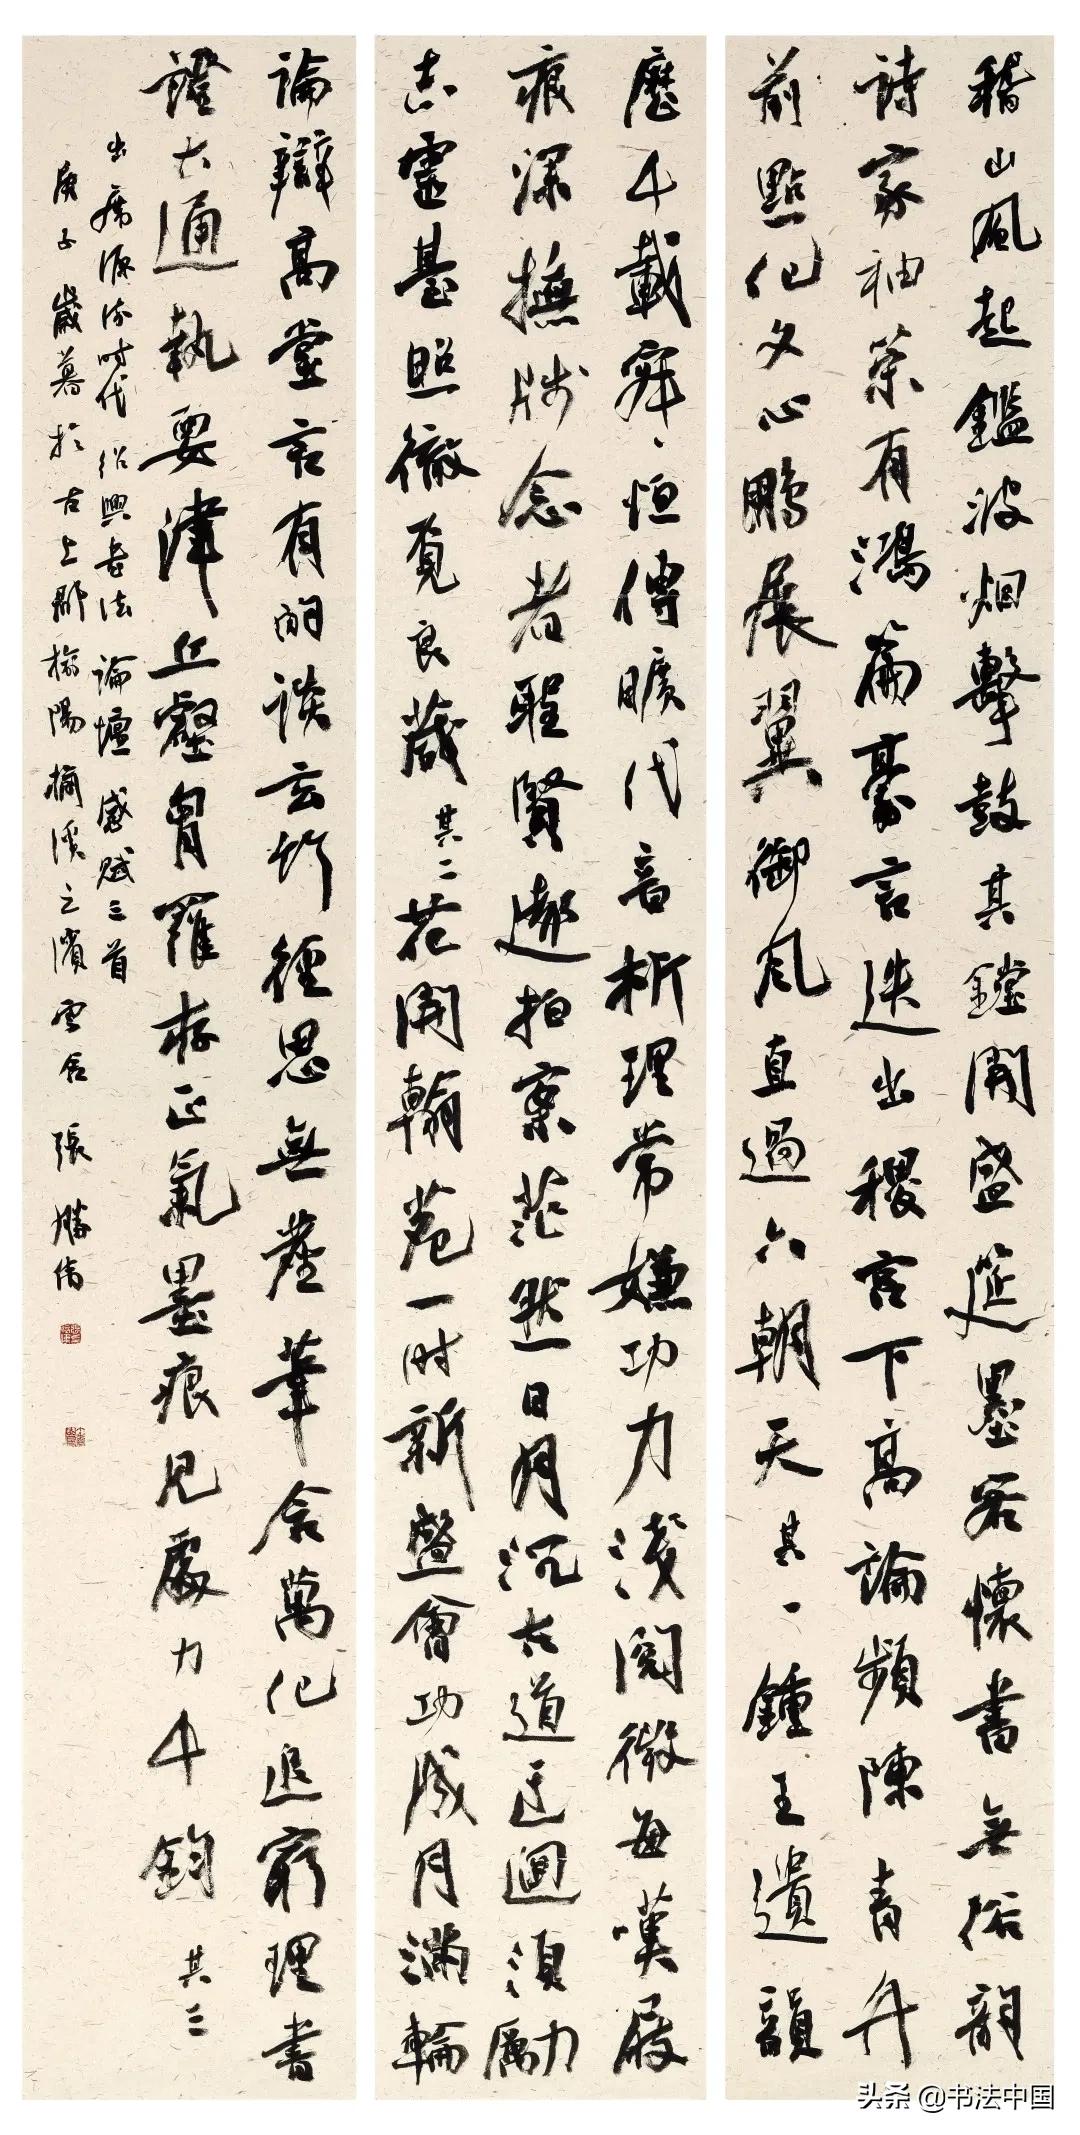 稽山風起鑑波烟擊鼓其鏜開盛筵墨客懷書無俗韻
詩家袖策有鴻篇豪言迭出稷宫下高論頻陳青
前點化文心鵬展翼御風直過六朝天 其一 鍾王遺韻
歷千載恒傳曠代音析理常嫌功力淺閱微每嘆屐
痕深撫牋念聖賢邈拍案茫然日月沉古道迂迴須勵
志靈臺照徹覓良箴 其二 花開翰苑一時新盛會功成月滿輪
論辯高堂言有的談玄竹徑思無塵筆含萬化追窮理書
證通執要津丘壑胸羅存正氣墨痕見處力千鈞 其三
出席源流時代紹興書法論壇感賦三首
庚子歲暮於古上郡榆陽榆溪之濱雲舍 張勝偉
头条 @书法中国